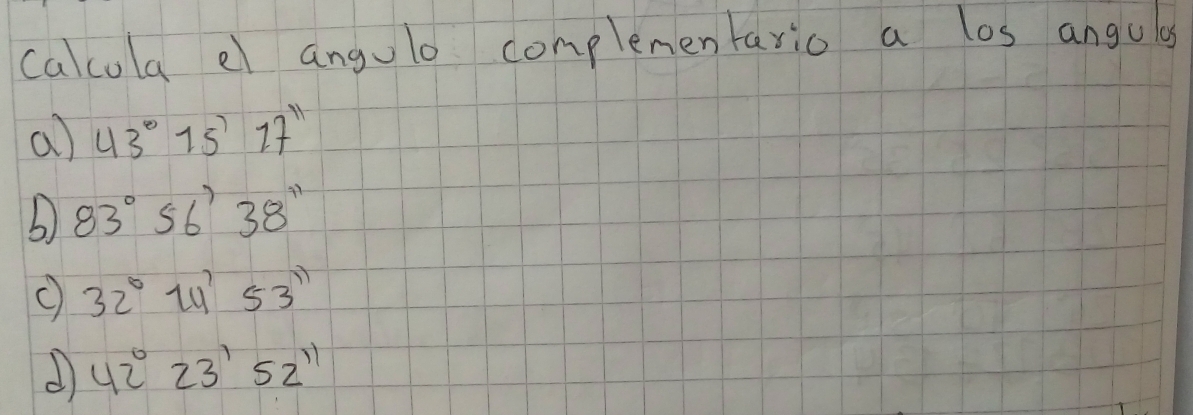 Calcula el angulo complementario a los angulos
a) 43° 15' 17"
b) 83° 56' 38"
c) 32° 14' 53"
d) 42° 23' 52"